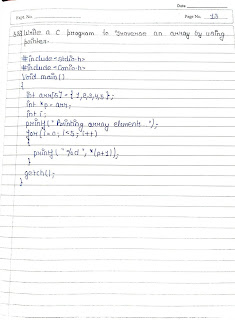 Date
Expt. No.
Page No. 13
Write a C program to Traverse an array by using
pointer.
#include<stdio.h>
#include<conio.h>
Void main()
{
int arr[5] = { 1,2,3,4,5 };
int *p = arr;
int i;
printf("Printing array elements...");
for(i=0; i<5; i++)
{
printf("%d", *(p+i));
}
getch();
}